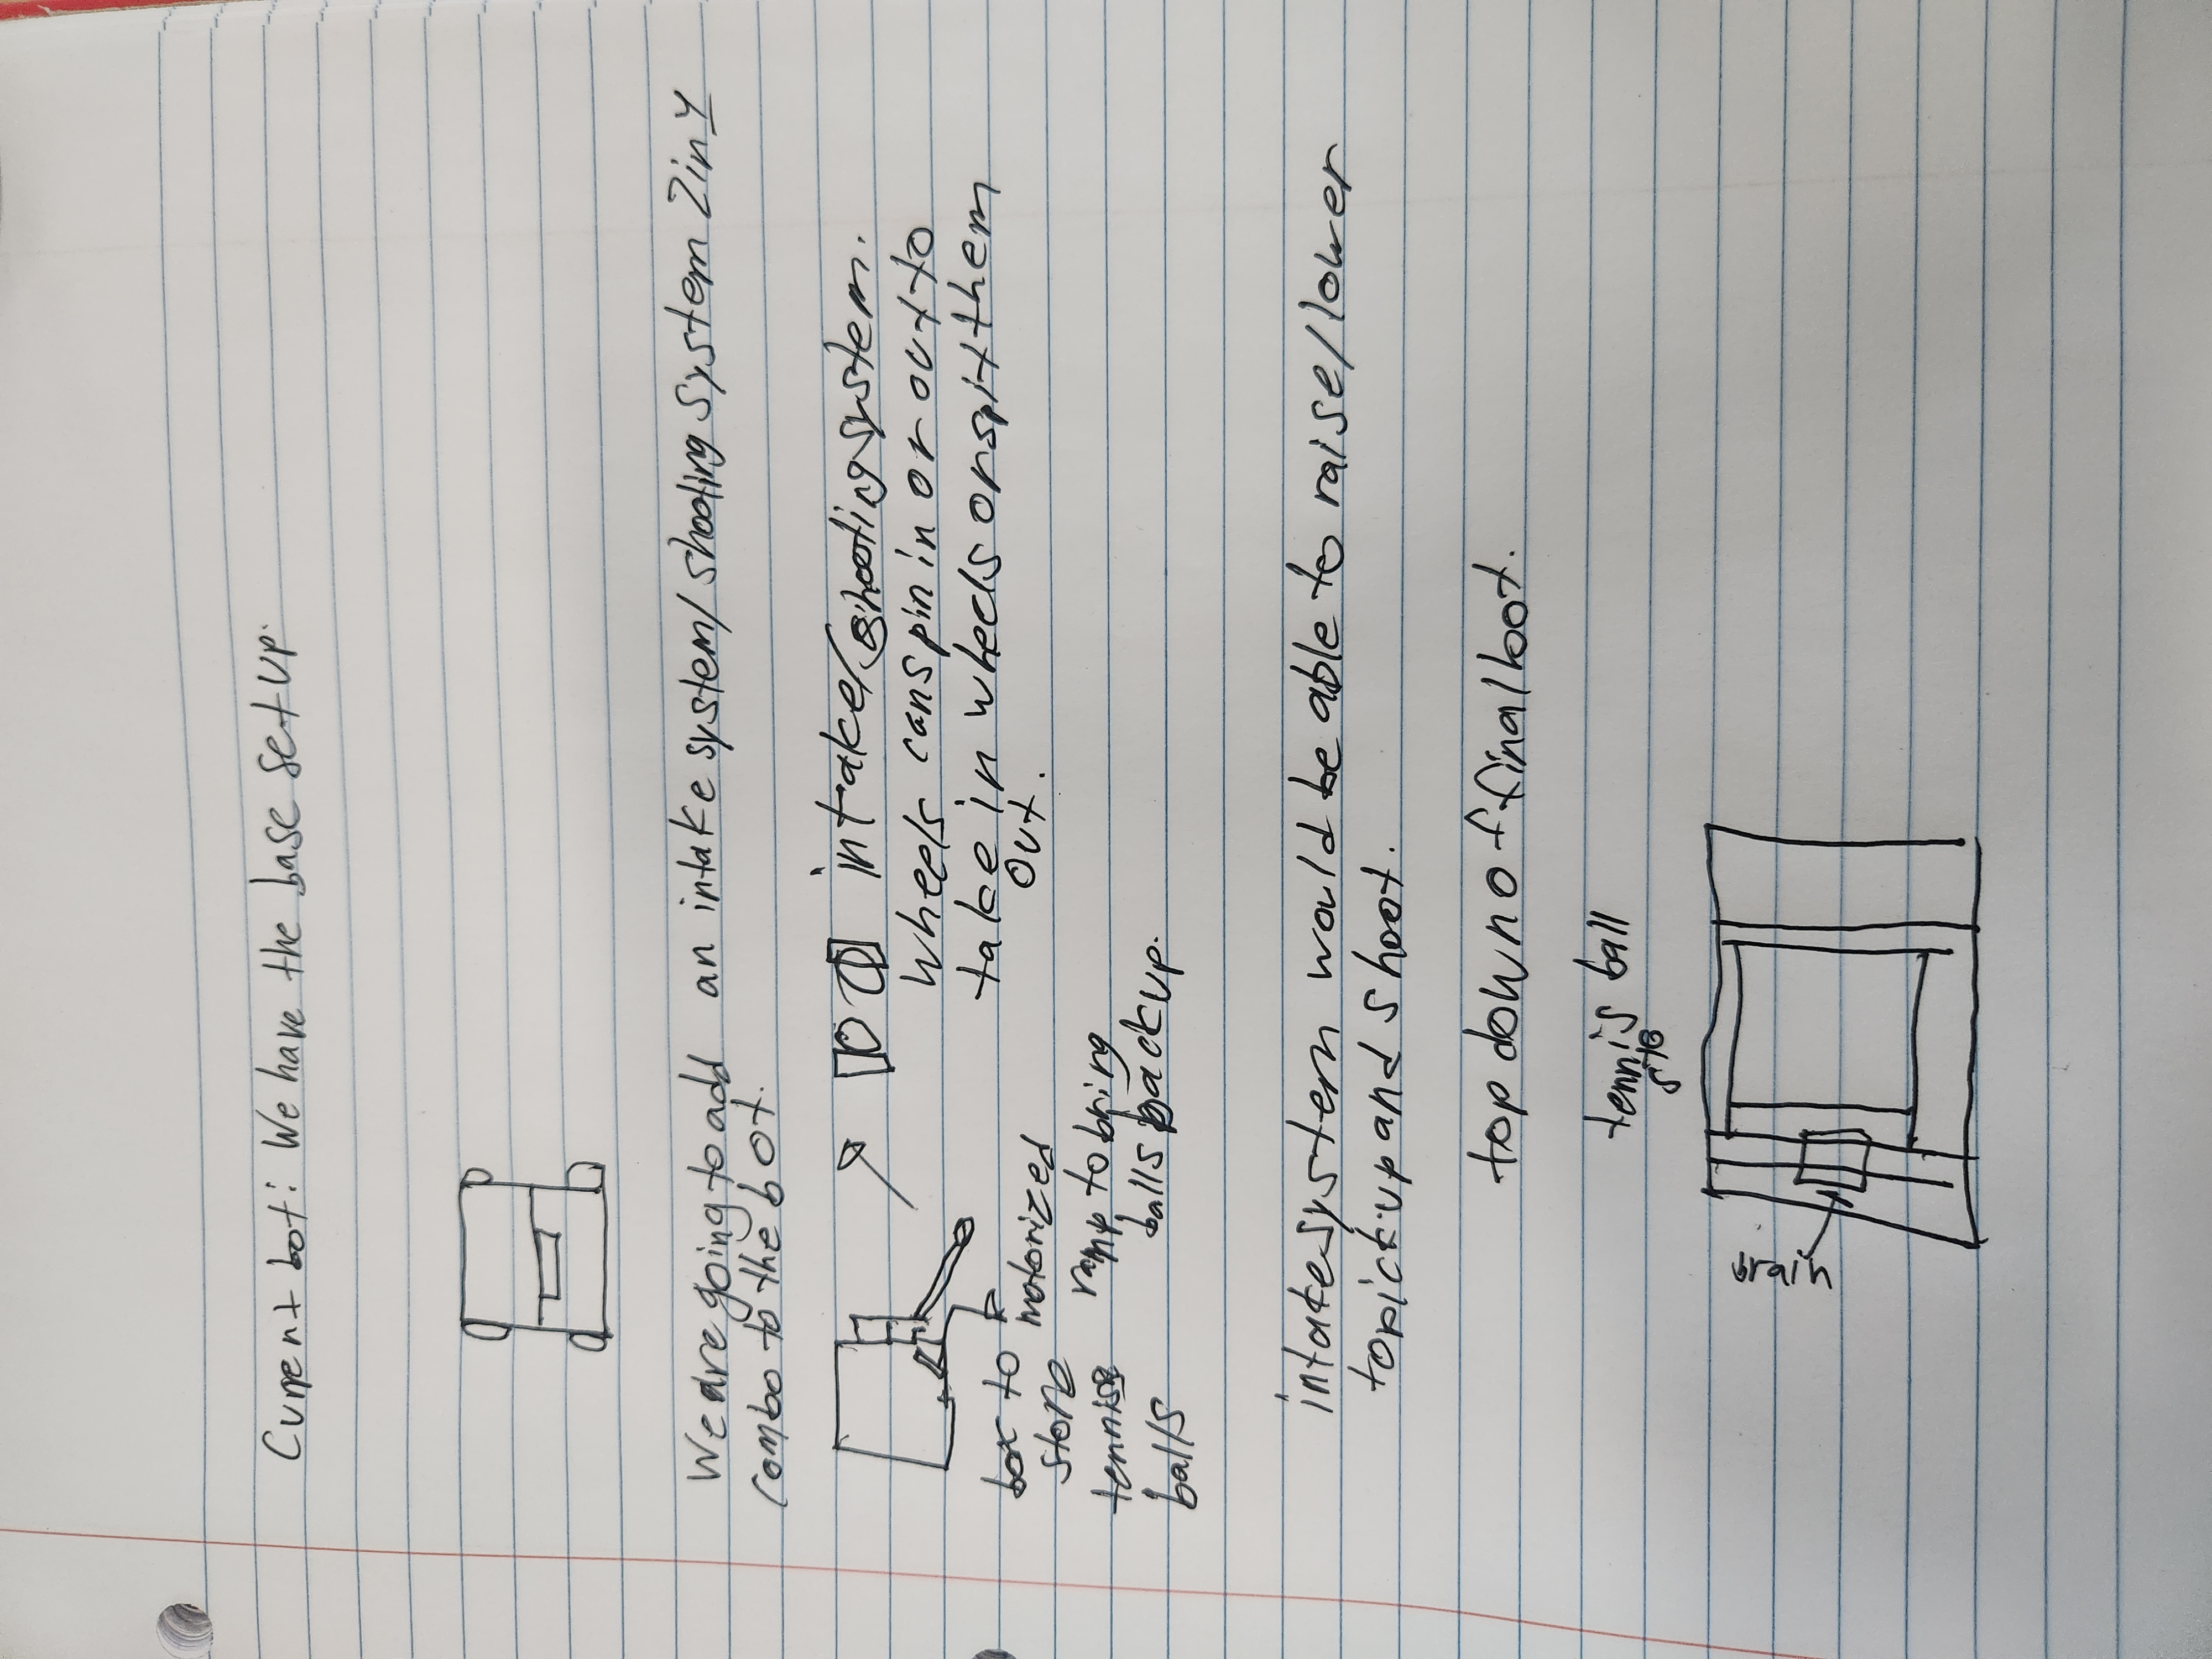 Current bot: We have the base set up.
We are going to add an intake system/ shooting system 2 in 1
combo to the bot.
intake/shooting system.
wheels can spin in or out to
take in wheels or spit them
out.
box to
store
tennis
balls
motorized
ramp to bring
balls back up.
intake system would be able to raise/lower
to pick up and shoot.
top down of final bot.
tennis ball
brain